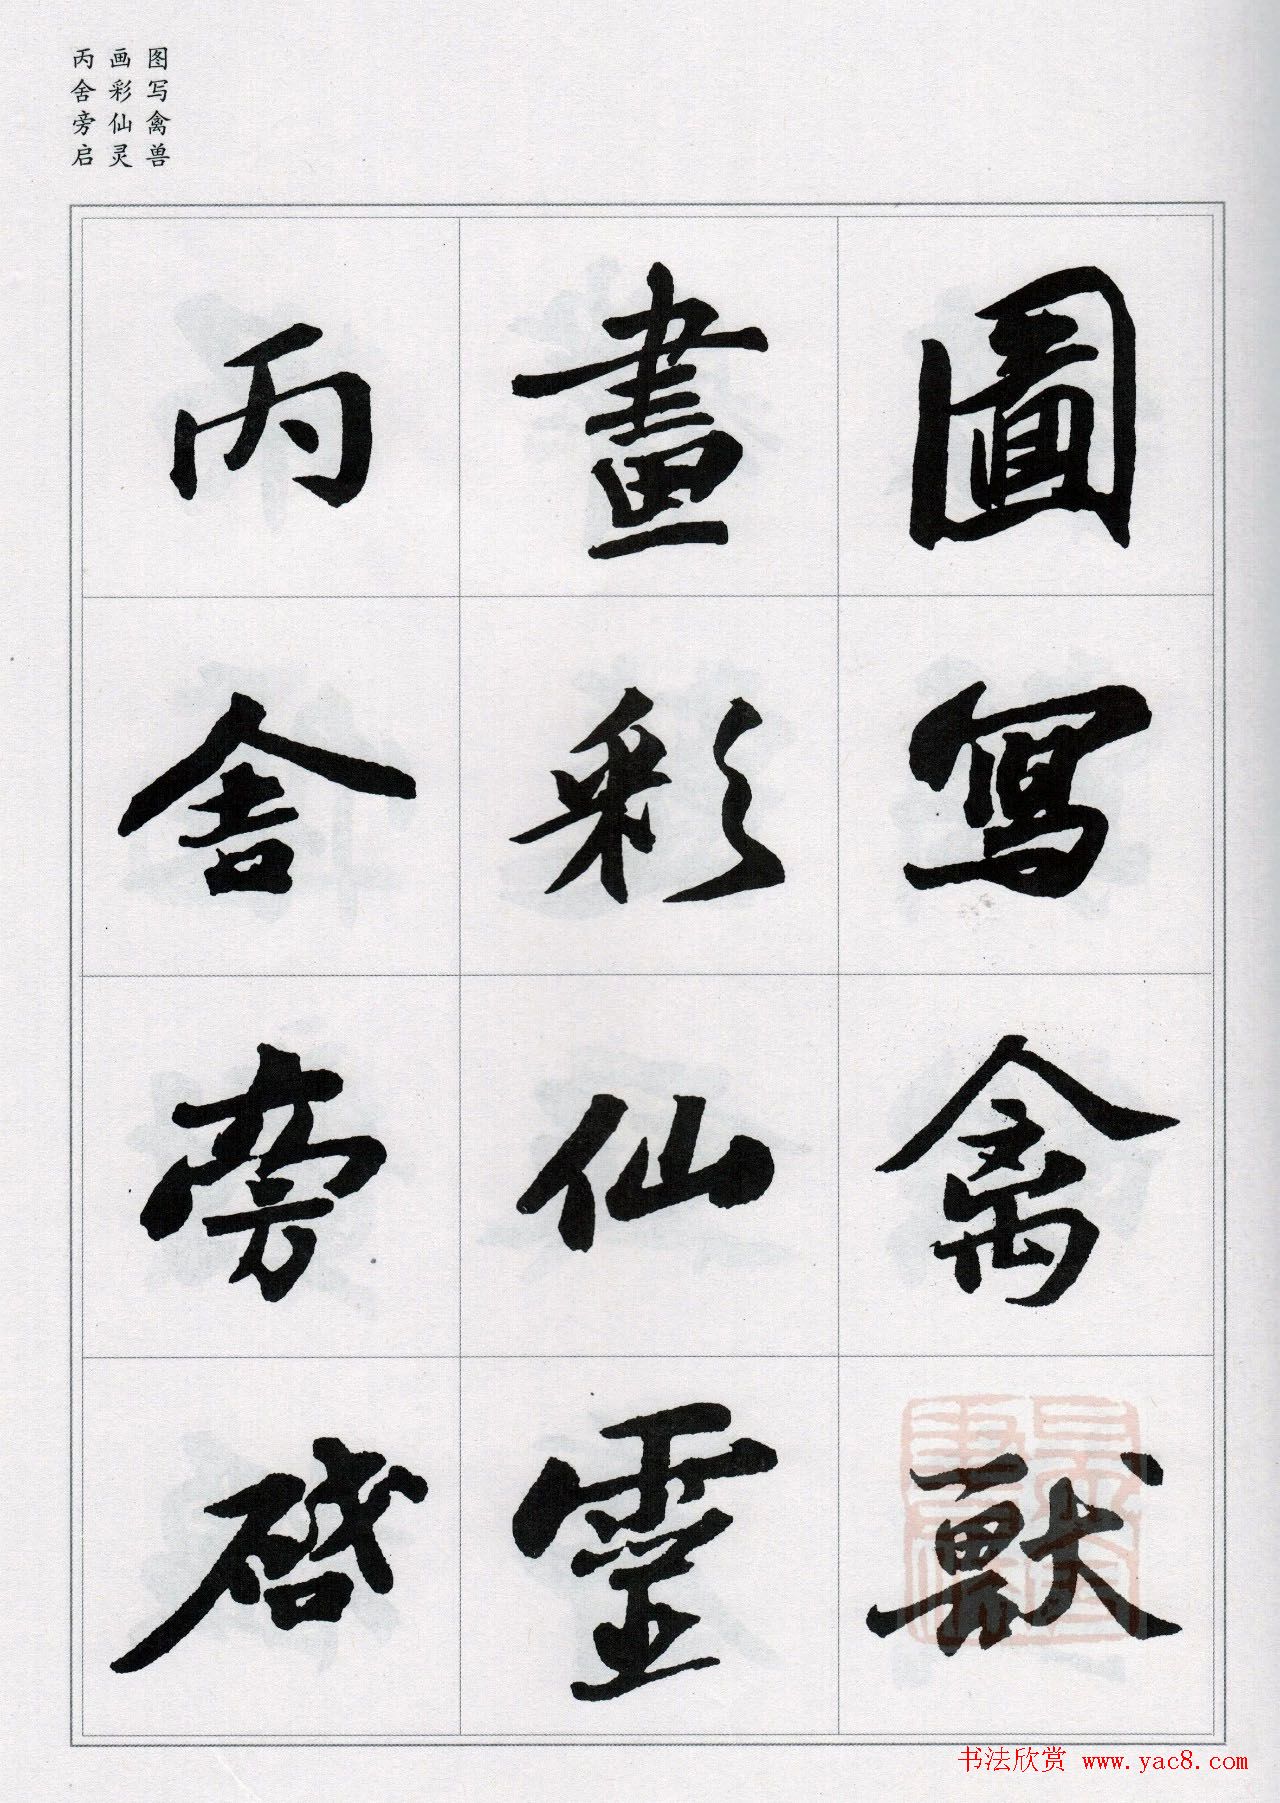 图写禽兽
画彩仙灵
丙舍旁启
圖寫禽獸
畫彩仙靈
丙舍旁啓
书法欣赏 www.yac8.com